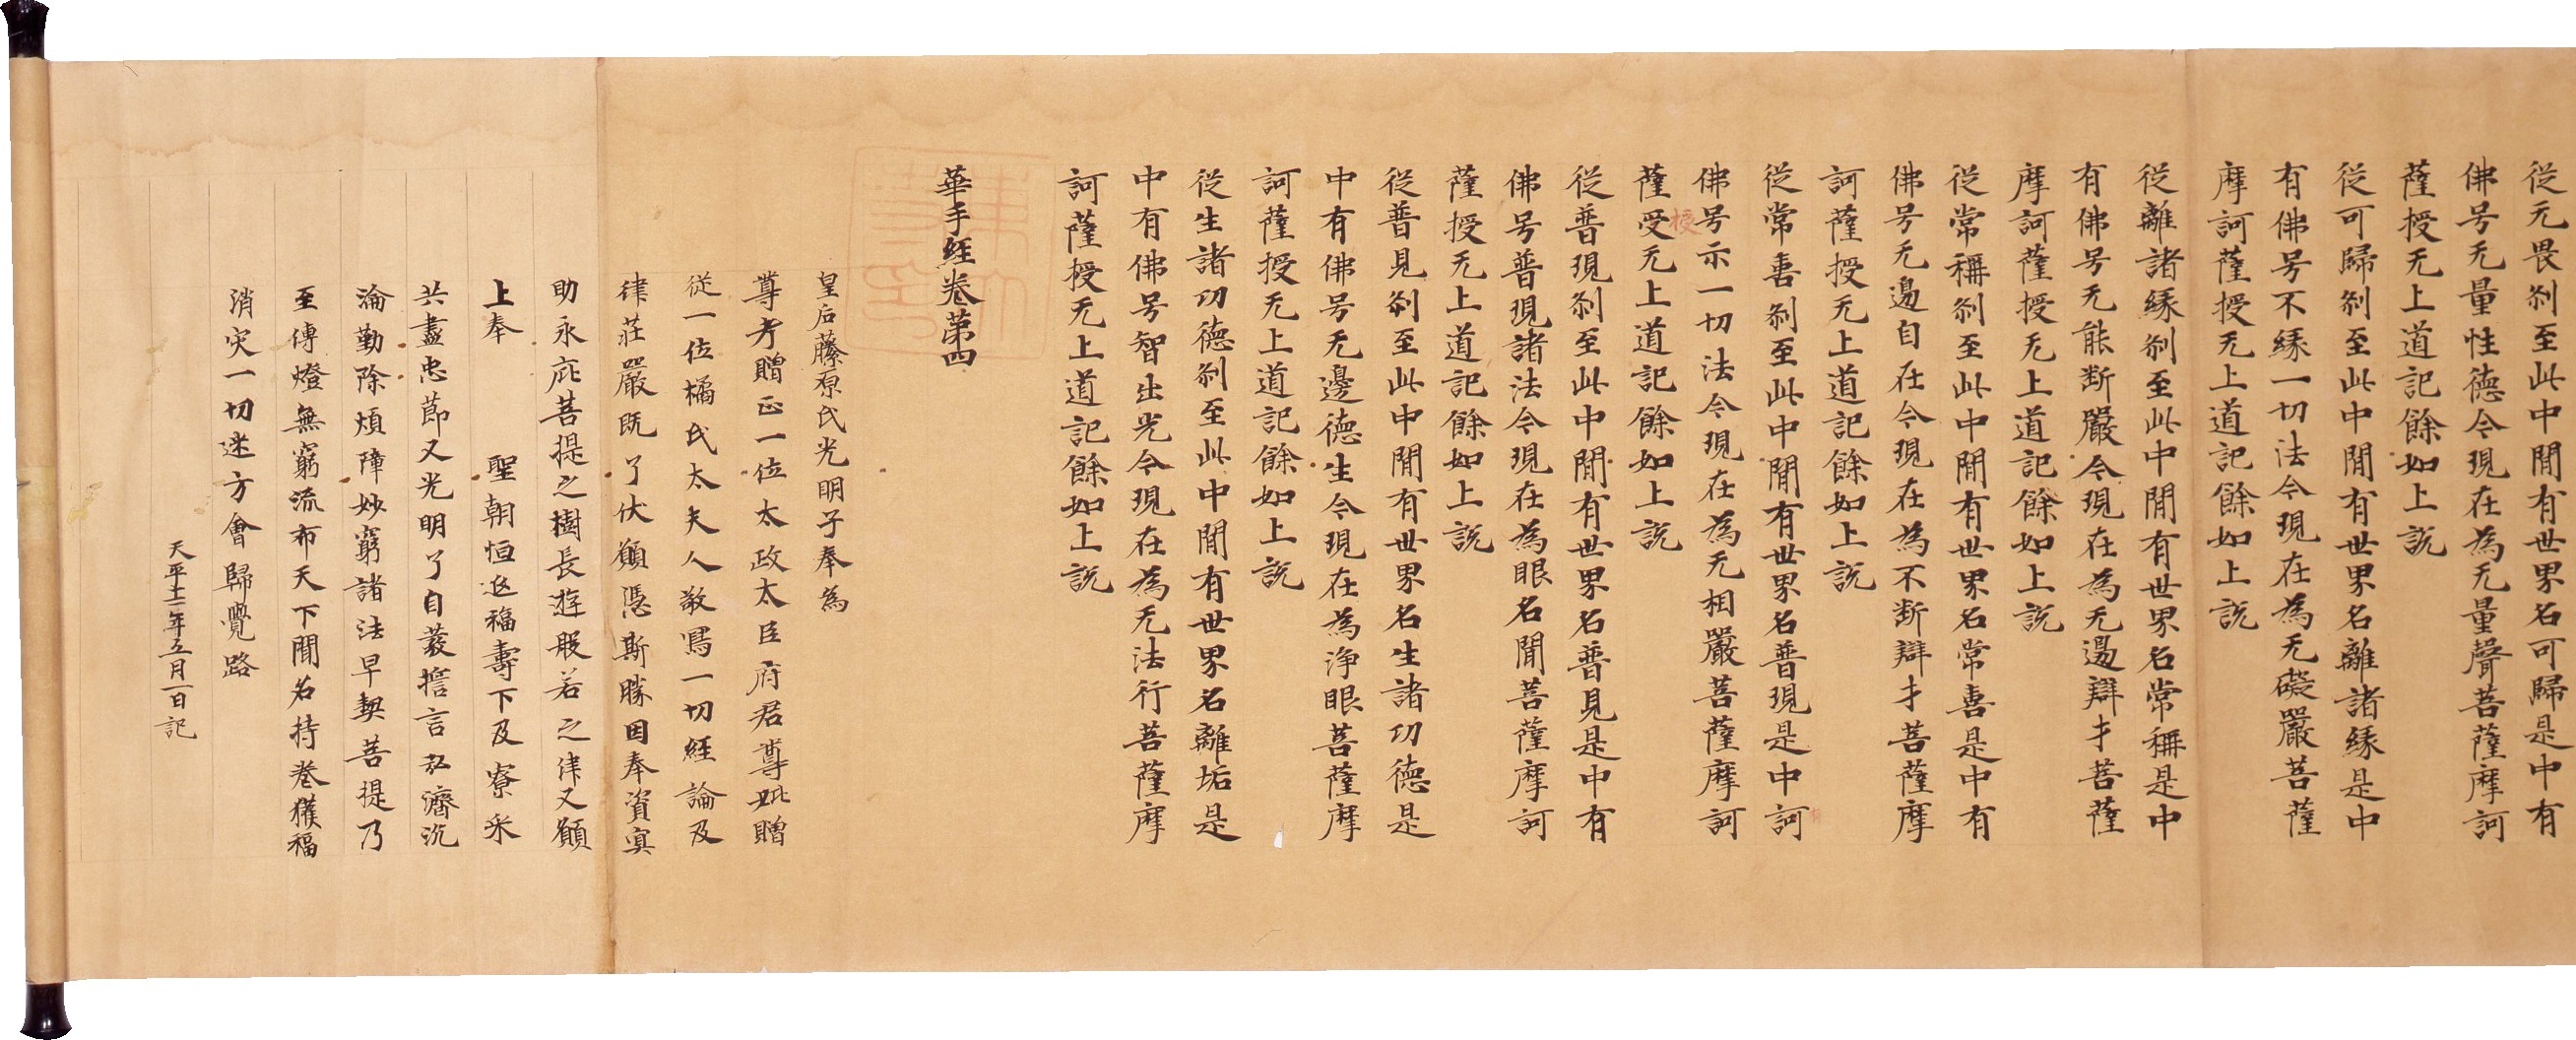 従无畏刹至此中間有世界名可歸是中有
佛号无量性德令現在為无量聲菩薩摩訶
薩授无上道記餘如上說
従可歸刹至此中間有世界名離諸緣是中
有佛号不緣一切法令現在為无礙嚴菩薩
摩訶薩授无上道記餘如上說
従離諸緣刹至此中間有世界名常稱是中
有佛号无能断嚴令現在為无邊辯才菩薩
摩訶薩授无上道記餘如上說
従常稱刹至此中間有世界名常喜是中有
佛号无邊自在令現在為不断辯才菩薩摩
訶薩授无上道記餘如上說
従常喜刹至此中間有世界名普現是中訶
佛号示一切法令現在為无相嚴菩薩摩訶
薩受无上道記餘如上說
授
従普現刹至此中間有世界名普見是中有
佛号普現諸法令現在為眼名聞菩薩摩訶
薩授无上道記餘如上說
従普見刹至此中間有世界名生諸功德是
中有佛号无邊德生令現在為淨眼菩薩摩
訶薩授无上道記餘如上說
従生諸功德刹至此中間有世界名離垢是
中有佛号智出光令現在為无法行菩薩摩
訶薩授无上道記餘如上說
華手經卷第四
皇后藤原氏光明子奉為
尊考贈正一位太政太臣府君尊妣贈
従一位橘氏太夫人敬寫一切經論及
律莊嚴既了伏願憑斯勝因奉資冥
助永庇菩提之樹長遊般若之津又願
上奉 聖朝恒延福壽下及寮采
共盡忠節又光明子自發誓言弘濟沉
淪勤除煩障妙窮諸法早契菩提乃
至傳燈無窮流布天下聞名持卷獲福
消灾一切迷方會歸覺路
天平十二年五月一日記